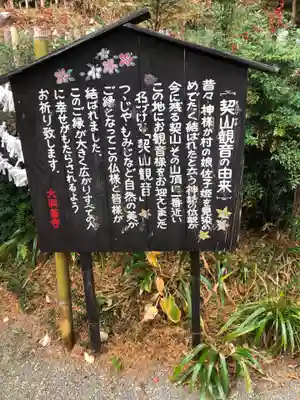 [契山観音の由来]
昔々神様が村の娘佐子姫を見染め
めでたく結ばれたと云う神話の伝説が
今に残る契山その山頂に一番近い
この地にお観音様をお迎えしました
名づけて「契山観音」
つゝじやもみじなど自然の美が
ご縁となってこの仏様と皆様が
結ばれました。
このご縁が大きく広がりすべての人
に幸せがもたらされるよう
お祈り致します。
大興善寺